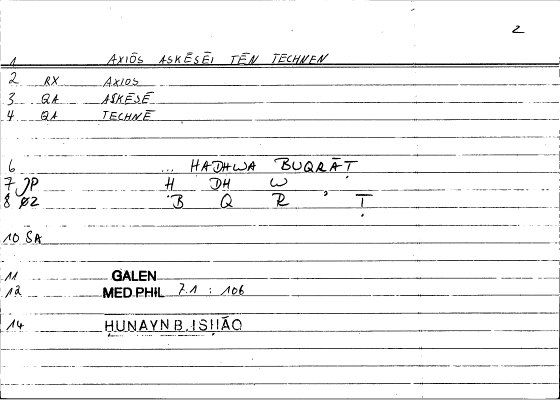 2
1 AXIŌS ASKĒSĒI TĒN TECHNEN
2 RX AXIOS
3 QA ASKĒSĒ
4 QA TECHNĒ
6 ... HADHWA BUQRĀṬ
7 JP H DH W
8 ØZ B Q R , Ṭ
10 SA
11 GALEN
12 MED.PHIL 7.1 : 106
14 ḤUNAYN B. ISḤĀQ